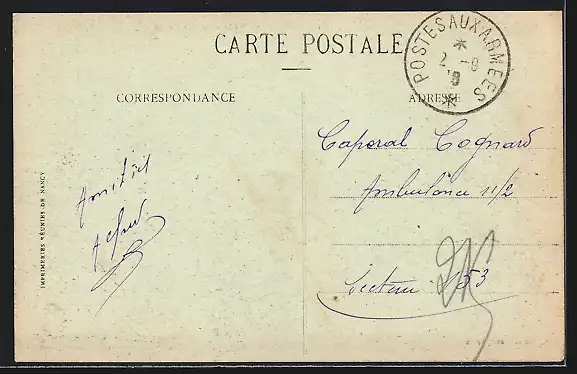 CARTE POSTALE
POSTES AUX ARMEES
2 - 9
18
CORRESPONDANCE
ADRESSE
Caporal Cognard
Ambulance 11/2
Secteur 153
Amitiés
IMPRIMERIES RÉUNIES DE NANCY